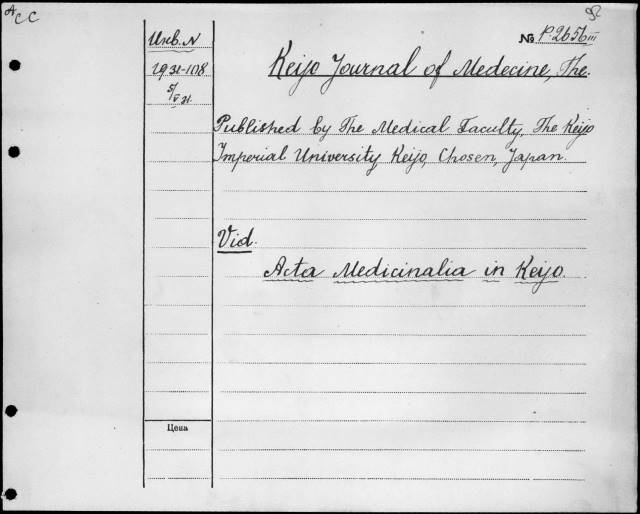 ACC
92
Инв. N
№ P.2656 III
1931-1108
5/V 31.
Keijo Journal of Medecine, The.
Published by The Medical Faculty, The Keijo
Imperial University Keijo, Chosen, Japan.
Vid.
Acta Medicinalia in Keijo.
Цена